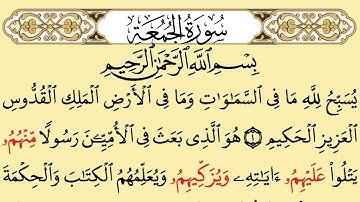 سُورَةُ الْجُمُعَةِ
بِسْمِ اللَّهِ الرَّحْمَٰنِ الرَّحِيمِ
يُسَبِّحُ لِلَّهِ مَا فِي السَّمَٰوَٰتِ وَمَا فِي الْأَرْضِ الْمَلِكِ الْقُدُّوسِ
الْعَزِيزِ الْحَكِيمِ ١ هُوَ الَّذِي بَعَثَ فِي الْأُمِّيِّـۧنَ رَسُولًا مِّنْهُمُۥ
يَتْلُوا۟ عَلَيْهِمُۥٓ ءَايَٰتِهِۦ وَيُزَكِّيهِمُۥ وَيُعَلِّمُهُمُ الْكِتَٰبَ وَالْحِكْمَةَ